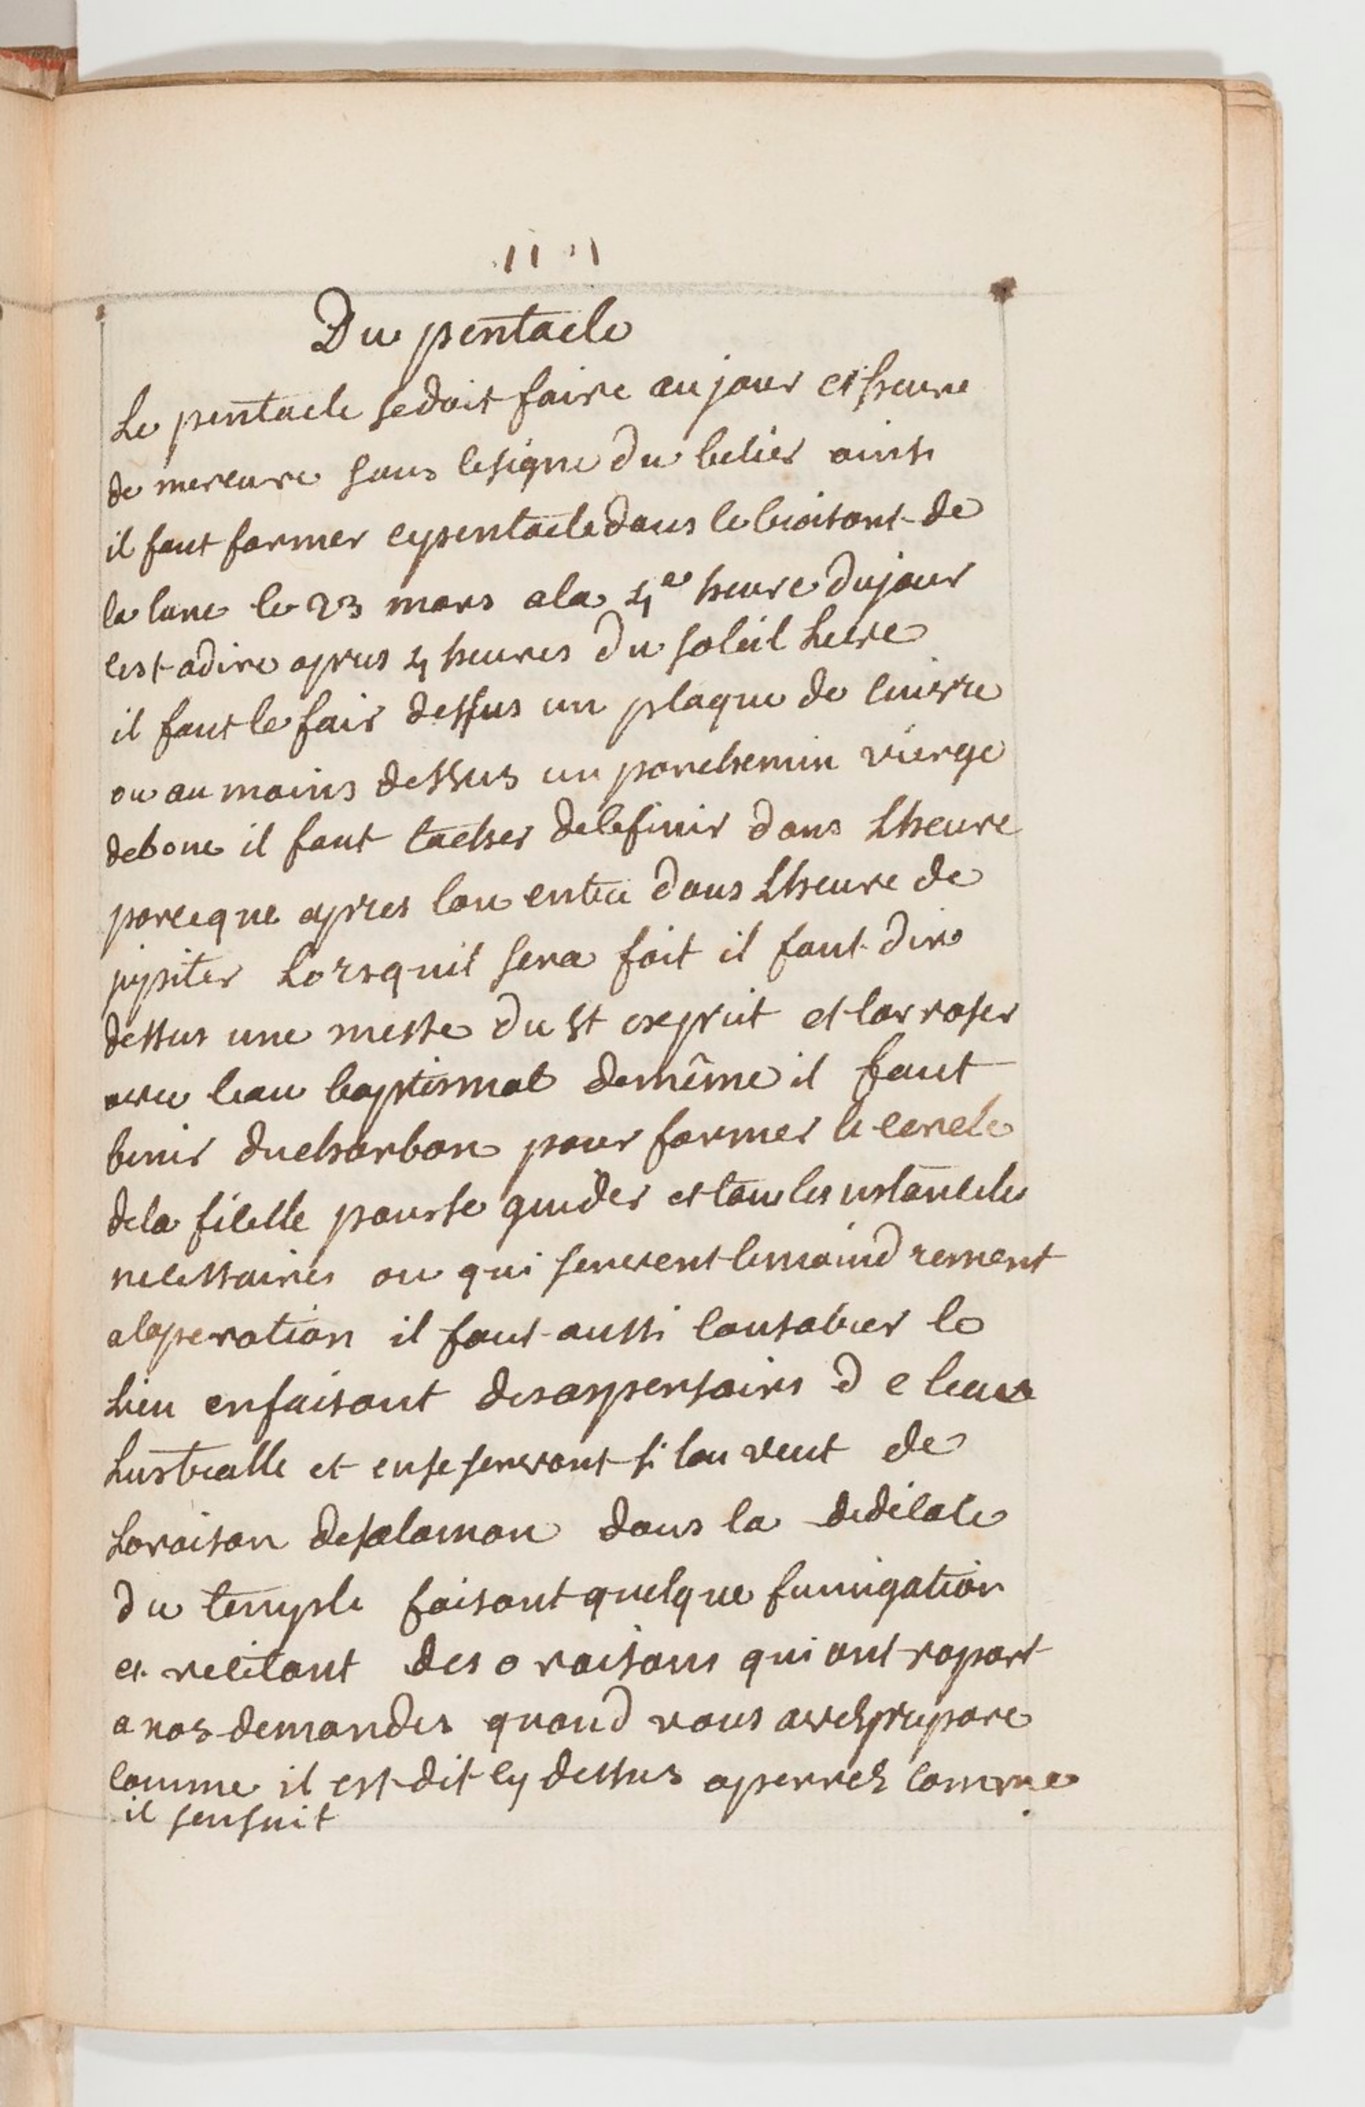 Du pentacle
Le pentacle se doit faire au jour et heure
de mercure sous le signe du belier ainsi
il faut former cy pentacle dans le croisant de
la lune le 23 mars a la 4e heure du jour
cest adire apres 4 heures du soleil Leve
il faut le fair dessus un plaque de cuivre
ou au moins dessus un parchemin vierge
de bouc il faut tacher de le finir dans Lheure
parceque apres lon entre dans Lheure de
jupiter Lorsquil sera fait il faut dire
dessus une messe du st esprit et larroser
avec leau baptismal de même il faut
benir du charbon pour former le cercle
de la ficelle pour se guider et tous les ustancile
necessaires ou qui servent le moindrement
a loperation il faut aussi consacrer le
Lieu en faisant des aspersoirs de leau
Lustralle et en se servant si lon veut de
Loraison de salomon dans la dedicace
du temple faisant quelque fumigation
et recitant des oraisons qui ont raport
a nos demandes quand vous avez prepare
comme il est dit cy dessus operrez comme
il sensuit